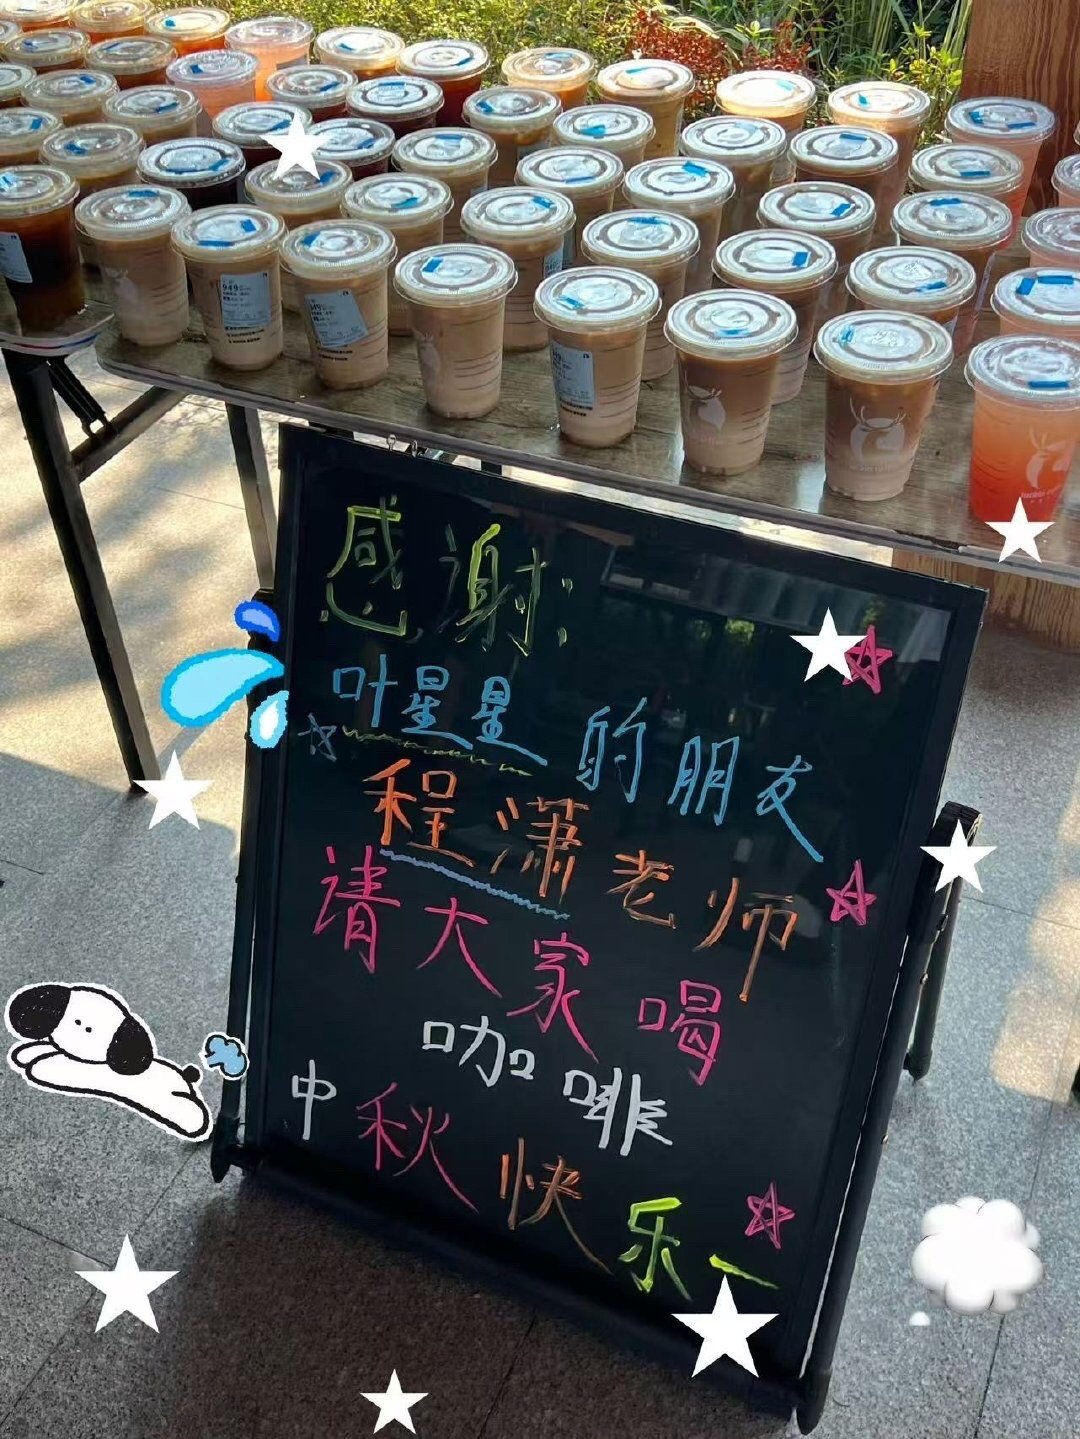 感谢:
叶星星的朋友
程潇老师
请大家喝
咖啡
中秋快乐
949
luckin coffee